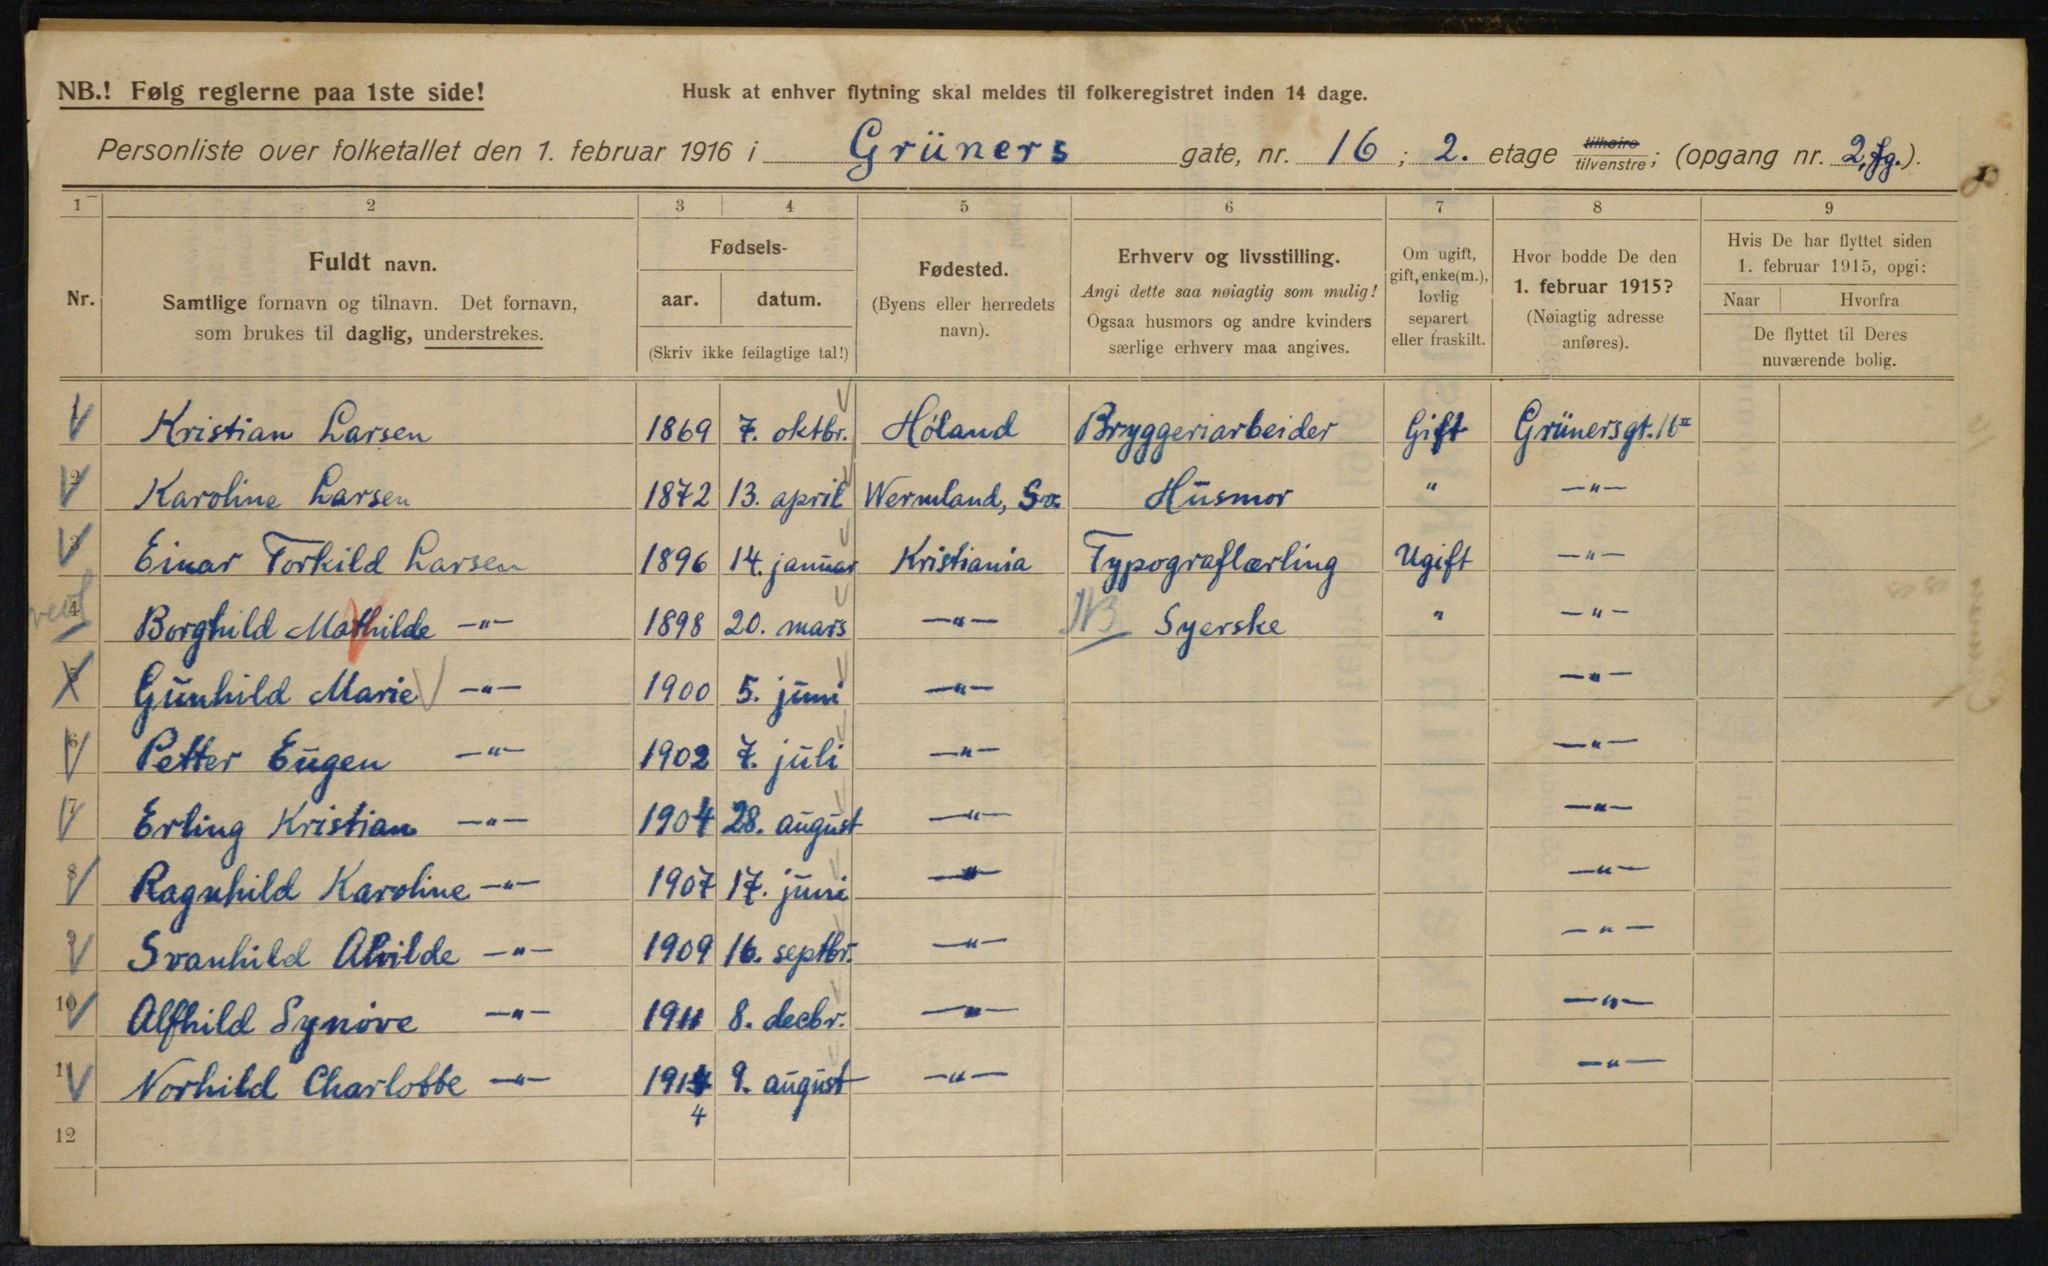 NB.! Følg reglerne paa 1ste side!
Husk at enhver flytning skal meldes til folkeregistret inden 14 dage.
Personliste over folketallet den 1. februar 1916 i Grüners gate, nr. 16; 2. etage tilhøire/tilvenstre; (opgang nr. 2, fg.).
1 2 3 4 5 6 7 8 9
Nr.
Fuldt navn.
Samtlige fornavn og tilnavn. Det fornavn,
som brukes til daglig, understrekes.
Fødsels-
aar. datum.
(Skriv ikke feilagtige tal!)
Fødested.
(Byens eller herredets
navn).
Erhverv og livsstilling.
Angi dette saa nøiagtig som mulig!
Ogsaa husmors og andre kvinders
særlige erhverv maa angives.
Om ugift,
gift, enke(m.),
lovlig
separert
eller fraskilt.
Hvor bodde De den
1. februar 1915?
(Nøiagtig adresse
anføres).
Hvis De har flyttet siden
1. februar 1915, opgi:
Naar Hvorfra
De flyttet til Deres
nuværende bolig.
1 Kristian Larsen 1869 7. oktbr. Høland Bryggeriarbeider Gift Grünersgt. 16 II
2 Karoline Larsen 1872 13. april Wermland, Sv. Husmor " —"—
3 Einar Torkild Larsen 1896 14. januar Kristiania Typograflærling Ugift —"—
4 Borghild Mathilde —"— 1898 20. mars —"— NB Syerske " —"—
5 Gunhild Marie —"— 1900 5. juni —"— —"—
6 Petter Eugen —"— 1902 7. juli —"— —"—
7 Erling Kristian —"— 1904 28. august —"— —"—
8 Ragnhild Karoline —"— 1907 17. juni —"— —"—
9 Svanhild Alvilde —"— 1909 16. septbr. —"— —"—
10 Alfhild Synöve —"— 1911 8. decbr. —"— —"—
11 Norhild Charlotte —"— 1914 9. august —"— —"—
4
12